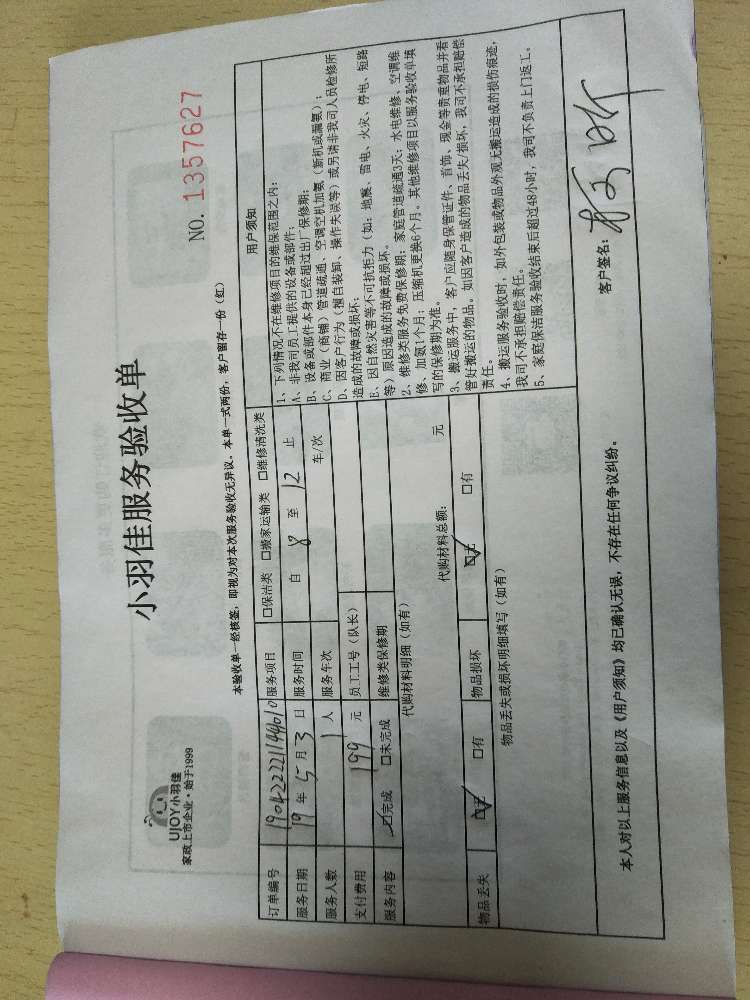 UJOY小羽佳
家政上市企业·始于1999
小羽佳服务验收单
NO. 1357627
本验收单一经核签，即视为对本次服务验收无异议。本单一式两份，客户留存一份（红）
订单编号 服务项目 □保洁类 □搬家运输类 □维修清洗类
服务日期 19 年 5 月 3 日 服务时间 自 8 至 12 止
服务人数 1 人 服务车次 车/次
支付费用 199 元 员工工号（队长）
服务内容 ☑完成 □未完成 维修类保修期
代购材料明细（如有）
代购材料总额： 元
物品丢失 ☑无 □有 物品损坏 ☑无 □有
物品丢失或损坏明细填写（如有）
用户须知
1、下列情况不在维修项目的维保范围之内：
A、非我司员工提供的设备或部件；
B、设备或部件本身已经超过出厂保修期；
C、商业（商铺）管道疏通、空调空机加氨（新机或漏氨）；
D、因客户行为（擅自装卸、操作失误等）或另请非我司人员检修所
造成的故障或损坏；
E、因自然灾害等不可抗拒力（如：地震、雷电、火灾、停电、短路
等）原因造成的故障或损坏。
2、维修类服务免费保修期：家庭管道疏通3天；水电维修、空调维
修、加氨1个月；压缩机更换6个月。其他维修项目以服务验收单填
写的保修期为准。
3、搬运服务中，客户应随身保管证件、首饰、现金等贵重物品并看
管好搬运的物品。如因客户造成的物品丢失/损坏，我司不承担赔偿
责任。
4、搬运服务验收时，如外包装或物品外观无搬运造成的损伤痕迹，
我司不承担赔偿责任。
5、家庭保洁服务验收结束后超过48小时，我司不负责上门返工。
本人对以上服务信息以及《用户须知》均已确认无误，不存在任何争议纠纷。
客户签名：